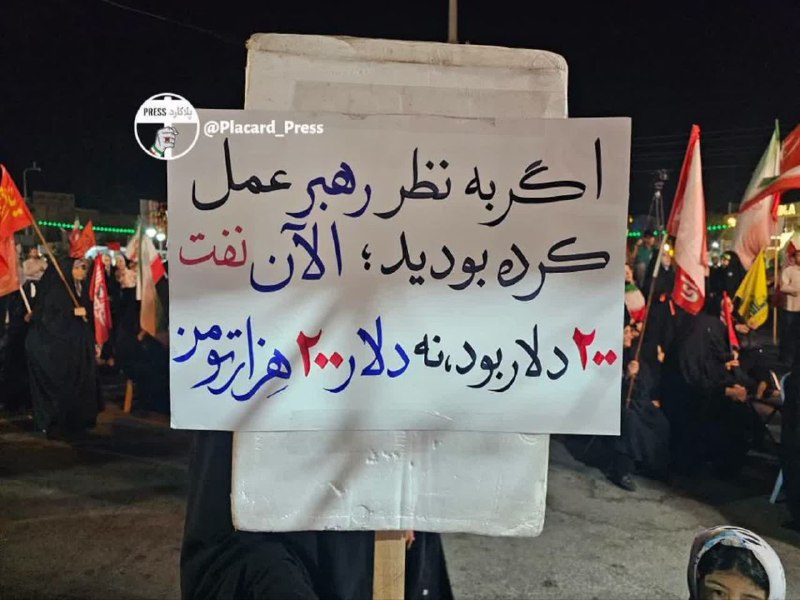 پلاکارد PRESS
@Placard_Press
اگر به نظر رهبر عمل
کرده بودید؛ الآن نفت
۲۰۰ دلار بود، نه دلار ۲۰۰ هزار تومن